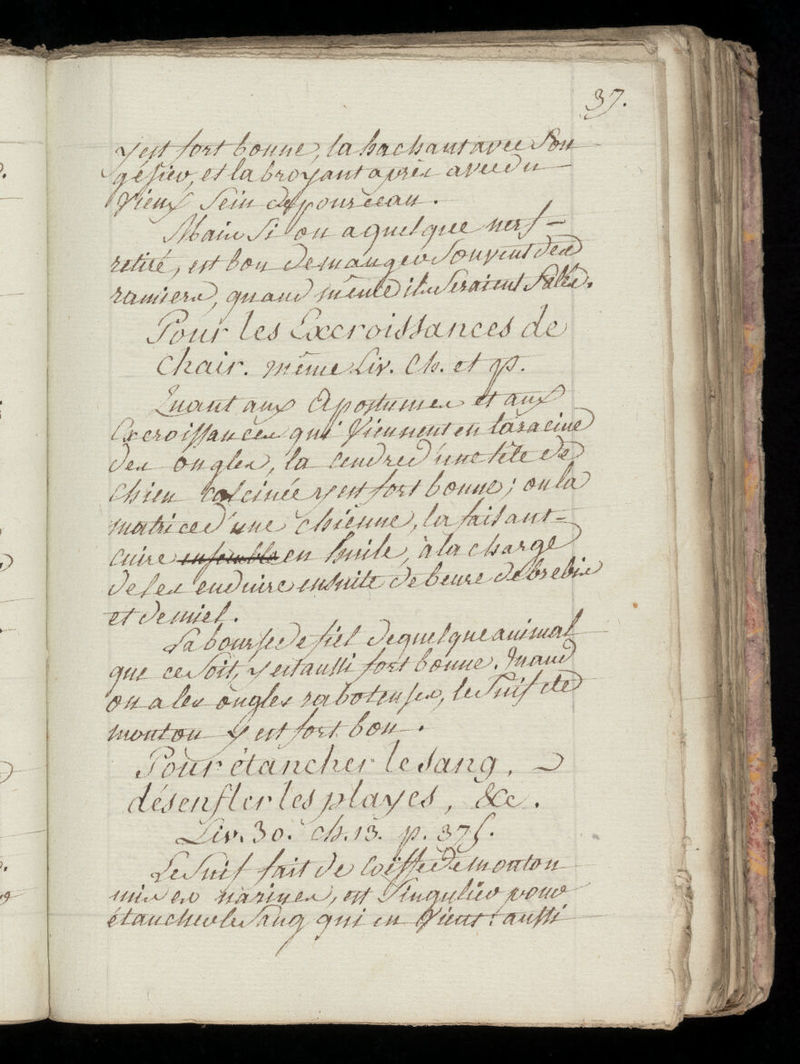 37.
y est fort bonne, la hachant avec son
gésier, et la broyant après avec du
vieux sein de pourceau.
Mais si on a quelque nerf-
retiré, est bon de manger souvent des
ramiers, quand même ils seraient salés.
Pour les Excroissances de
chair. même Liv. Ch. et p.
Quant aux Apostumes et aux
Excroissances qui viennent en la racine
des ongles, la cendre d'une tête de
chien calcinée y est fort bonne; ou la
matrice d'une chienne, la faisant-
cuire ensemble en huile, à la charge
de les enduire ensuite de beure de brebis
et de miel.
La bourse de fiel de quelque animal
que ce soit, y est aussi fort bonne. Quand
on a les ongles raboteuses, le suif de
mouton y est fort bon.
Pour étancher le sang,
désenfler les playes, &c.
Liv. 30. ch. 13. p. 375.
Le suif fait de coëffe de mouton
mis es narines, est singulier pour
étancher le sang qui en vient: aussi